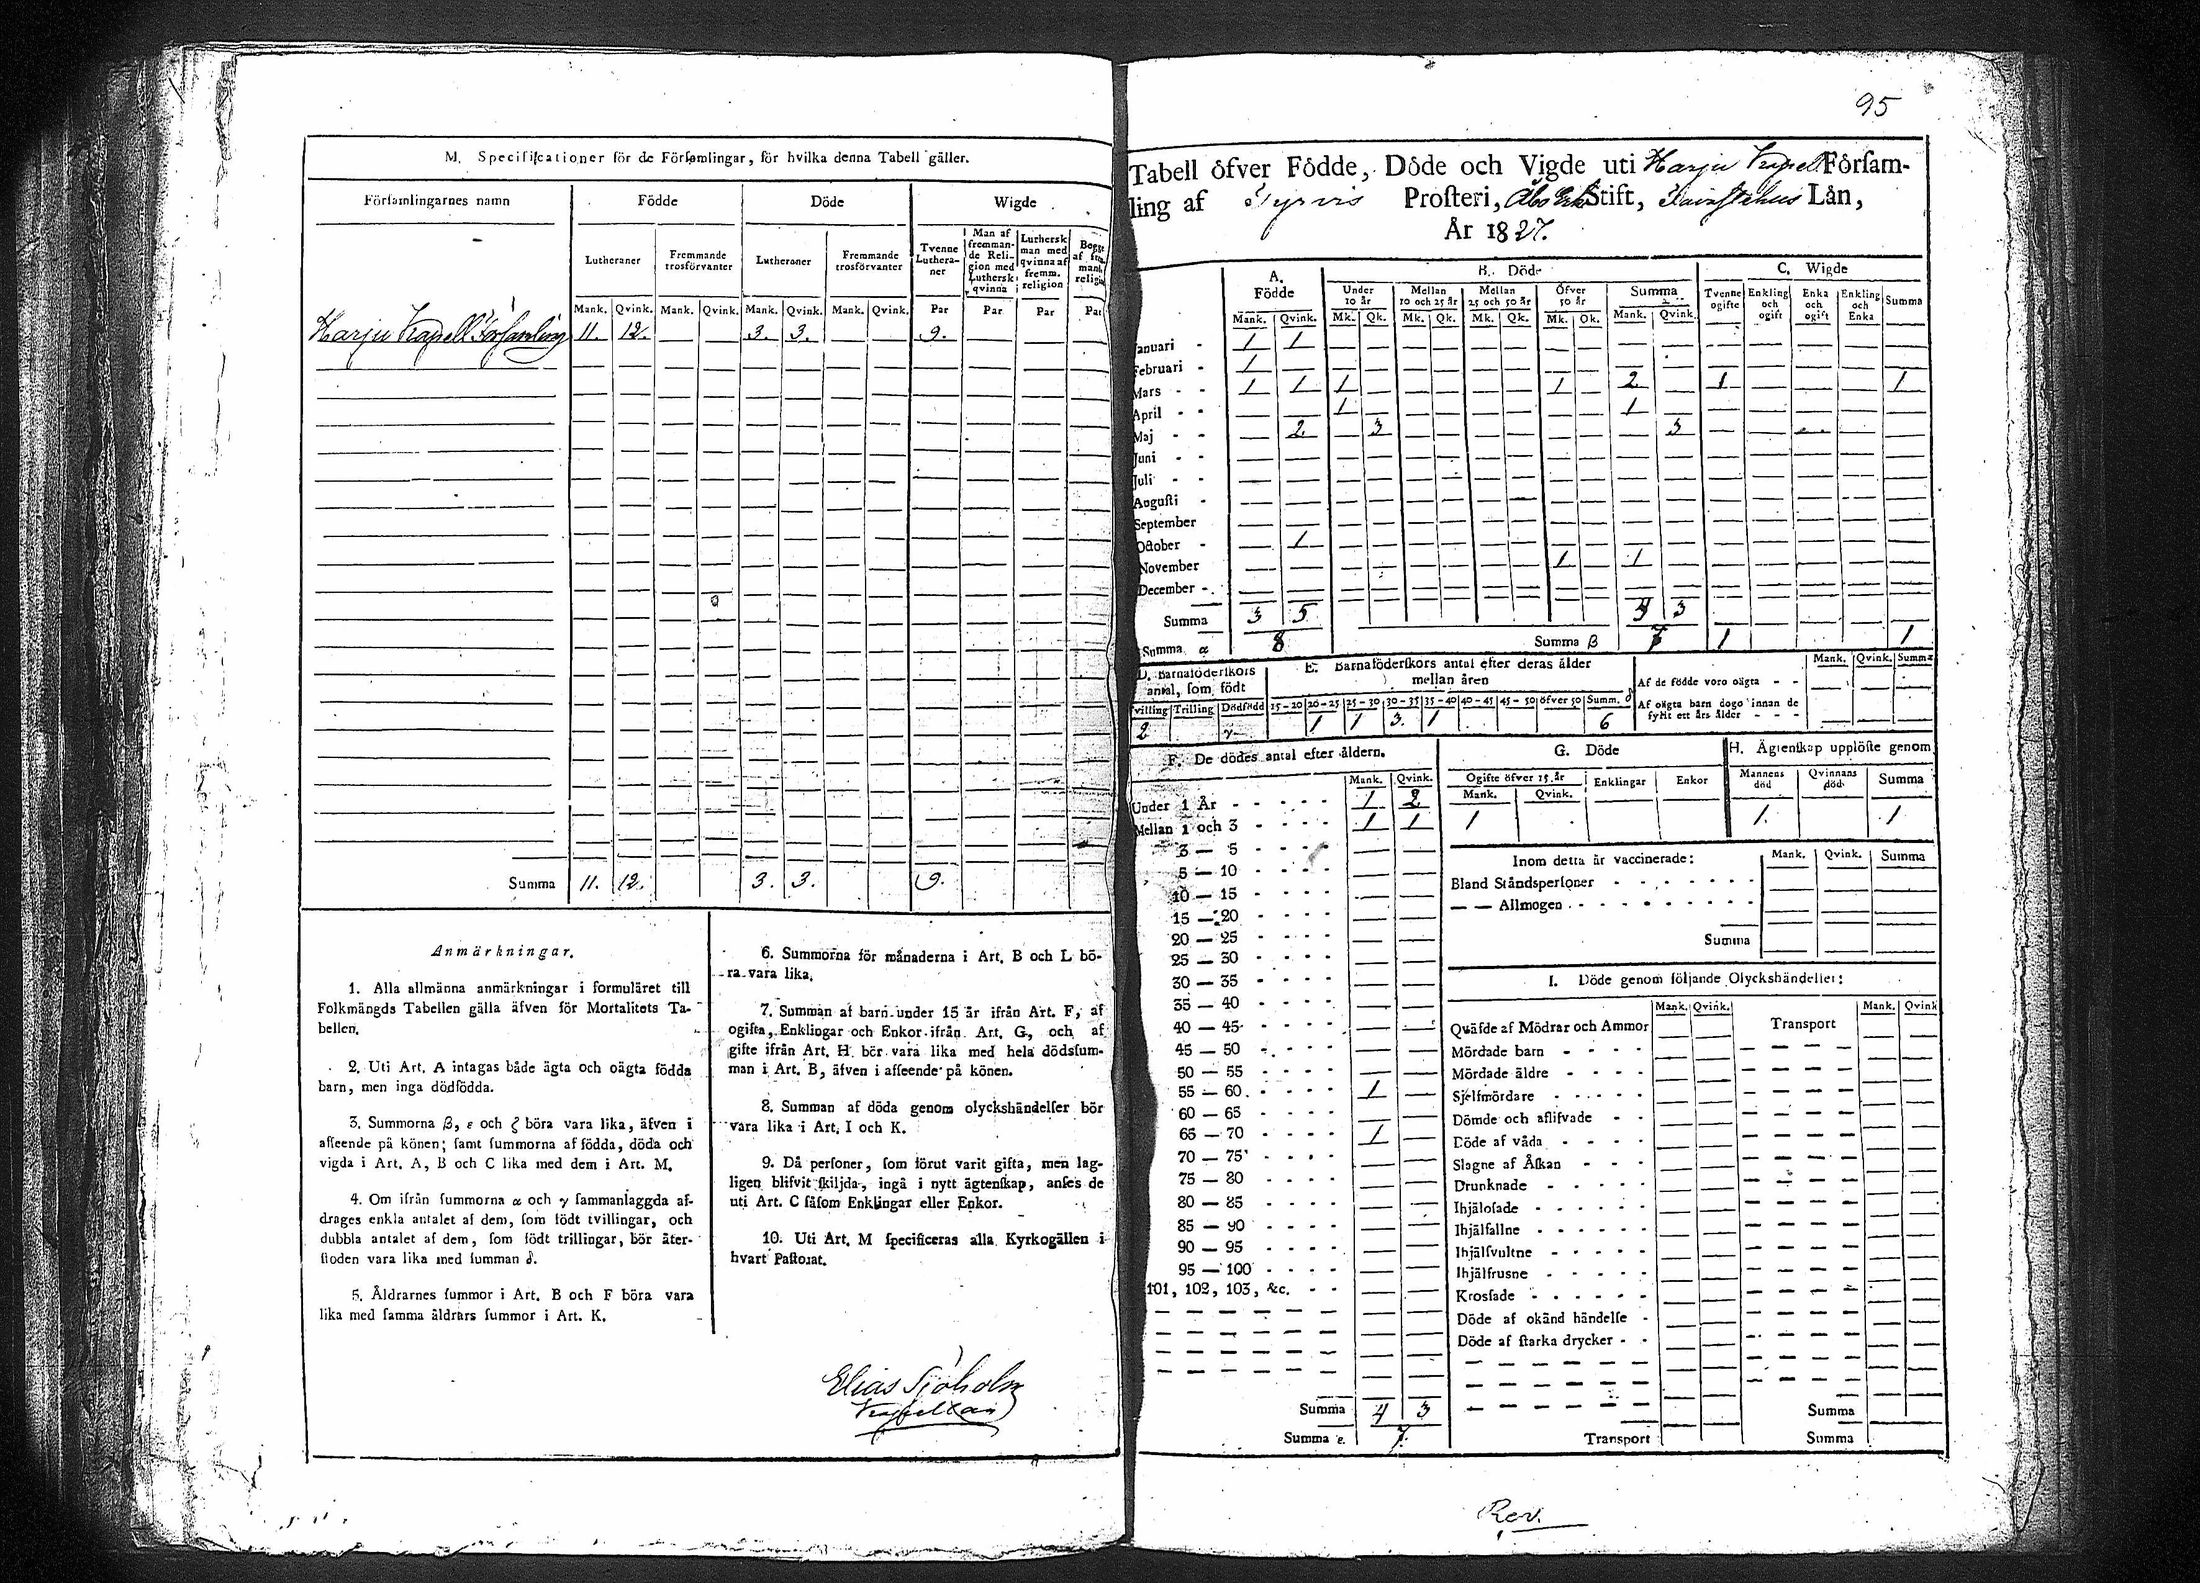 M. Specificationer för de Församlingar, för hvilka denna Tabell gäller.
Församlingarnes namn Födde Döde Wigde
Lutheraner Fremmande trosförvanter Lutheraner Fremmande trosförvanter Tvenne Lutheraner Man af fremmande Religion med Luthersk qvinna Luthersk man med qvinna af fremm. religion
Mank. Qvink. Mank. Qvink. Mank. Qvink. Mank. Qvink. Par Par Par Par
Harju Kapell Församling 11. 12. — — 3. 3. — — 9. — — —
Summa 11. 12. 3. 3. 9.
Anmärkningar.
1. Alla allmänna anmärkningar i formuläret till
Folkmängds Tabellen gälla äfven för Mortalitets Ta-
bellen.
2. Uti Art. A intagas både ägta och oägta födda
barn, men inga dödfödda.
3. Summorna β, ε och ζ böra vara lika, äfven i
afseende på könen; samt summorna af födda, döda och
vigda i Art. A, B och C lika med dem i Art. M.
4. Om ifrån summorna α och γ sammanlaggda af-
drages enkla antalet af dem, som födt tvillingar, och
dubbla antalet af dem, som födt trillingar, bör åter-
stoden vara lika med summan δ.
5. Åldrarnes summor i Art. B och F böra vara
lika med samma åldrars summor i Art. K.
6. Summorna för månaderna i Art. B och L bö-
ra vara lika.
7. Summan af barn under 15 år ifrån Art. F, af
ogifta, Enklingar och Enkor ifrån Art. G, och af
gifte ifrån Art. H bör vara lika med hela dödssum-
man i Art. B, äfven i afseende på könen.
8. Summan af döda genom olyckshändelser bör
vara lika i Art. I och K.
9. Då personer, som förut varit gifta, men lag-
ligen blifvit skiljda, ingå i nytt ägtenskap, anses de
uti Art. C såsom Enklingar eller Enkor.
10. Uti Art. M specificeras alla Kyrkogällen i
hvart Pastorat.
Elias Sjöholm
95
Tabell öfver Födde, Döde och Vigde uti Harju Kapell Församling
af Tyrvis Prosteri, Åbo Erke Stift, Tavastehus Län,
År 1827.
A. Födde B. Döde C. Wigde
Under 10 år Mellan 10 och 25 år Mellan 25 och 50 år Öfver 50 år Summa Tvenne ogifte Enkling och ogift Enka och ogift Enkling och Enka Summa
Mank. Qvink. Mk. Qk. Mk. Qk. Mk. Qk. Mk. Qk. Mank. Qvink.
Januari - 1 1
Februari - 1
Mars - - 1 1 1 1 2 1 1
April - - 1 1
Maj - - 2. 3 3
Juni - -
Juli - -
Augusti -
September
October - 1
November 1 1
December -
Summa 3 5 4 3
Summa α 8 Summa β 7 1 1
D. Barnaföderskors antal, som födt
Tvilling Trilling Dödfödd
2 γ
E. Barnaföderskors antal efter deras ålder mellan åren
15-20 20-25 25-30 30-35 35-40 40-45 45-50 öfver 50 Summ. δ
1 1 3. 1 6
Mank. Qvink. Summa
Af de födde voro oägta - -
Af oägta barn dogo innan de
fyllt ett års ålder - - -
F. De dödes antal efter åldern.
Mank. Qvink.
Under 1 År - - - - - 1 2
Mellan 1 och 3 - - - - 1 1
3 — 5 - - - -
5 — 10 - - - -
10 — 15 - - - -
15 — 20 - - - -
20 — 25 - - - -
25 — 30 - - - -
30 — 35 - - - -
35 — 40 - - - -
40 — 45 - - - -
45 — 50 - - - -
50 — 55 - - - -
55 — 60 - - - - 1
60 — 65 - - - -
65 — 70 - - - - 1
70 — 75 - - - -
75 — 80 - - - -
80 — 85 - - - -
85 — 90 - - - -
90 — 95 - - - -
95 — 100 - - - -
101, 102, 103, &c. - -
Summa 4 3
Summa ε. 7.
G. Döde
Ogifte öfver 15 år Enklingar Enkor
Mank. Qvink.
1
H. Ägtenskap upplöste genom
Mannens död Qvinnans död Summa
1. 1
Inom detta år vaccinerade: Mank. Qvink. Summa
Bland Ståndspersoner - - - - - - -
— — Allmogen - - - - - - - -
Summa
I. Döde genom följande Olyckshändelser:
Mank. Qvink. Mank. Qvink
Quäfde af Mödrar och Ammor Transport
Mördade barn - - - -
Mördade äldre - - - -
Sjelfmördare - - - - -
Dömde och aflifvade - -
Döde af våda - - - -
Slagne af Åskan - - -
Drunknade - - - - -
Ihjälosade - - - - -
Ihjälfallne - - - - -
Ihjälsvultne - - - - -
Ihjälfrusne - - - - -
Krossade - - - - - -
Döde af okänd händelse -
Döde af starka drycker - -
Summa
Transport Summa
Rev.